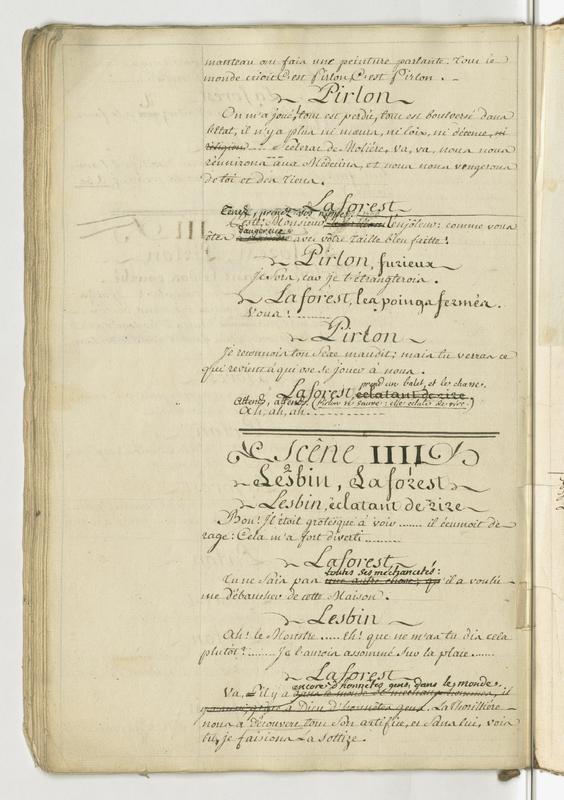 manteau ou fais une peinture parlante. tout le
monde crioit C'est Pirlon, C'est Pirlon.
Pirlon
On m'a joué! tout est perdu, tout est boulversé dans
l'état, il n'y a plus ni mœurs, ni loix, ni décence, ni
religion ... Scélerat de Moliére, va, va, nous nous
réunirons aux Médecins, et nous nous vengerons
de toi et des tiens.
Laforest
Tenez, prenez vos nippes,
Monsieur l'enjôleur: comme vous
dangereux
êtes avec votre taille bien faitte!
Pirlon, furieux
Je sors, car je t'étranglerois.
Laforest, les poings fermés.
Vous! ........
Pirlon
Je reconnois ton Sexe maudit; mais tu verras ce
qui revient à qui ose se jouer à nous.
prend un balet, et le chasse.
Laforest, éclatant de rire.
Attend, attend, (Pirlon se sauve: elle éclate de rire.)
Ah, ah, ah. ..............
Scêne IIII
Lesbin, Laforest
Lesbin, éclatant de rire
Bon! Il étoit grotesque à voir ...... il écumoit de
rage: Cela m'a fort diverti .........
Laforest
toutes ses méchancetés:
Tu ne sais pas une autre chose; qu'il a voulu
me débaucher de cette Maison.
Lesbin
Ah! le Monstre ..... Eh! que ne m'as tu dis cela
plutôt? ........ Je l'aurois assommé sur la place .....
Laforest
encore d'honnêtes gens dans le monde.
Va, s'il y a dans le monde de méchans hommes, il
y a aussi grâces à Dieu d'honnêtes gens. La Thorilliere
nous a découvert tout son artifice, et sans lui, vois
tu, je faisions la sottize.